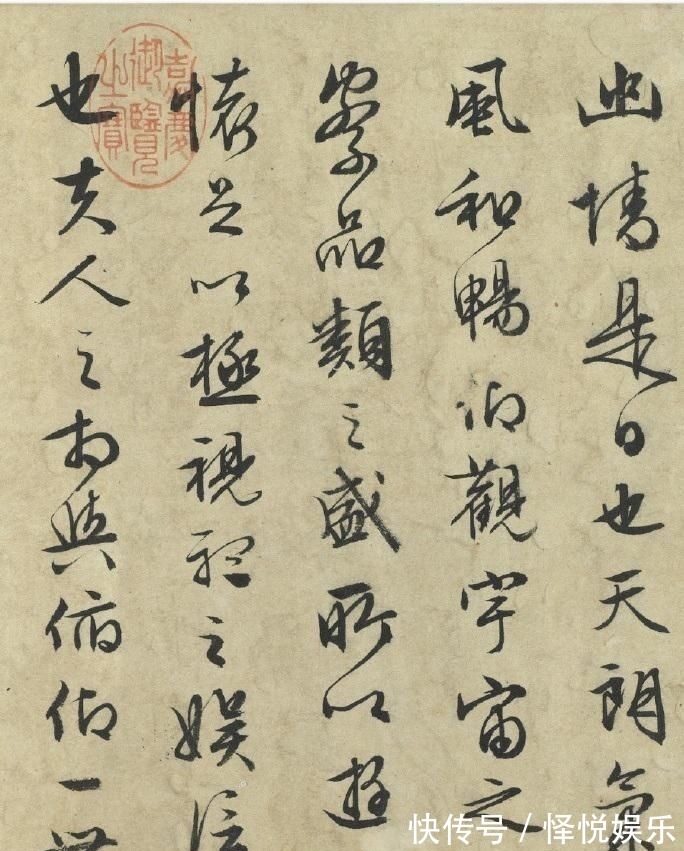 幽情是日也天朗氣
風和暢仰觀宇宙之
察品類之盛所以遊
懷足以極視聽之娛信
也夫人之相與俯仰一世
嘉慶御覽之寶
快传号 / 怿悦娱乐